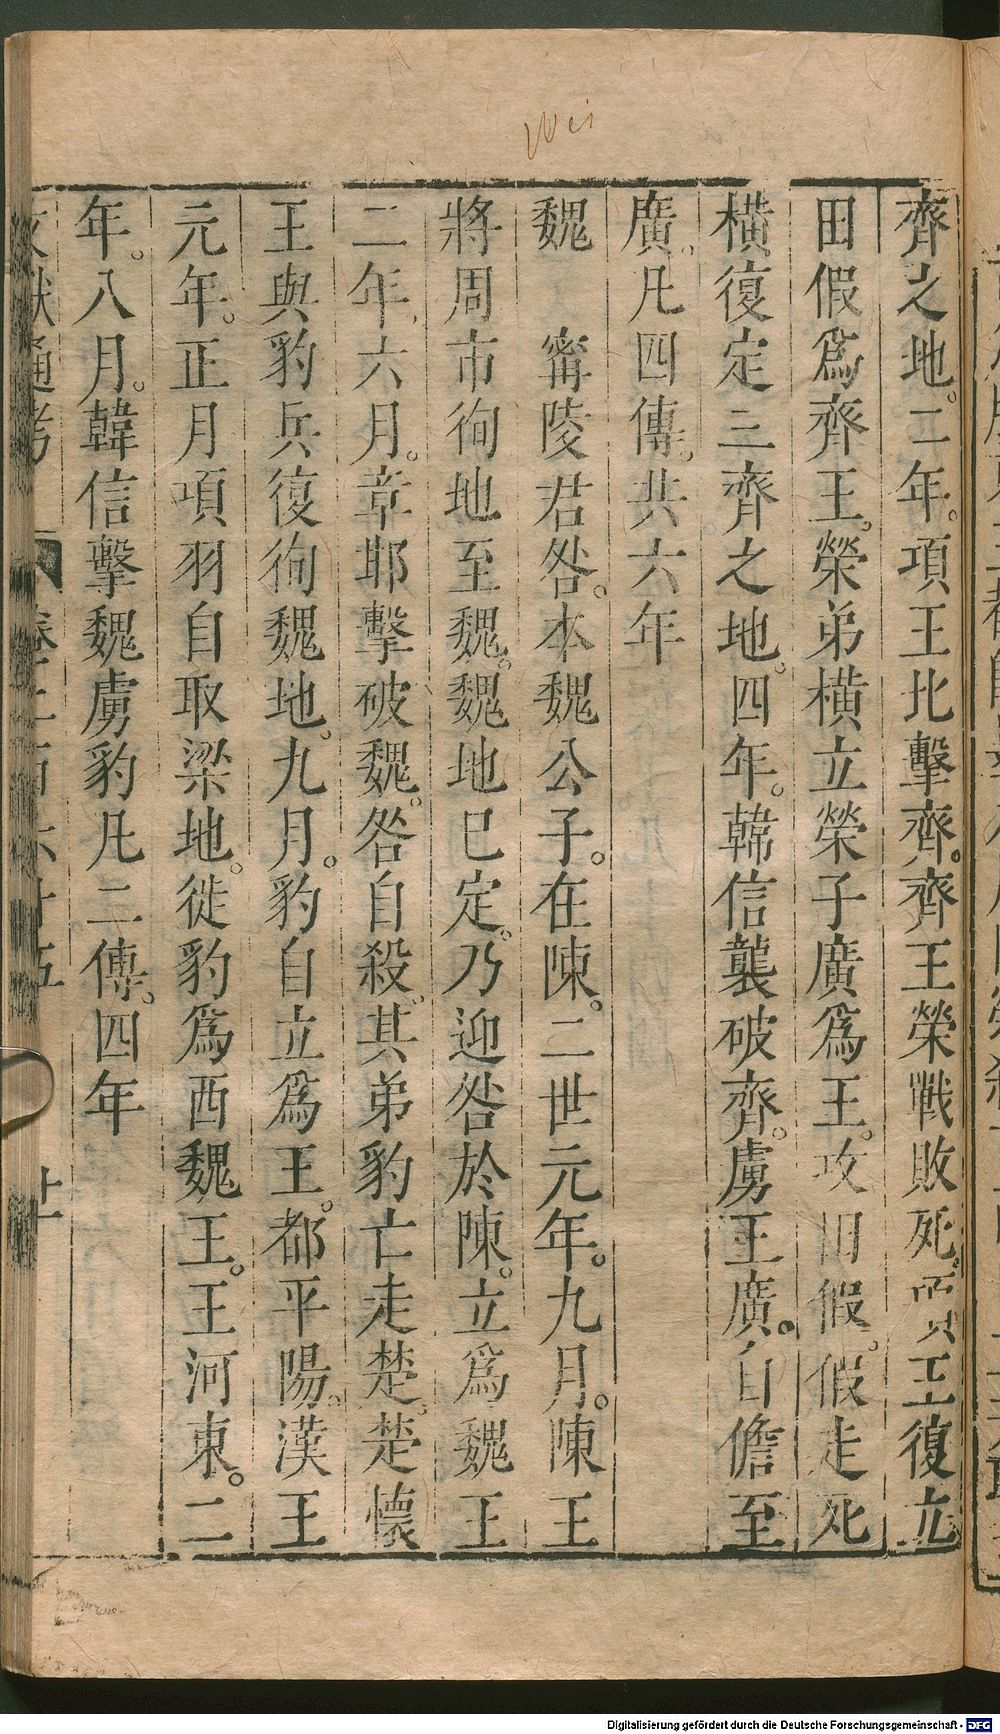 齊之地。二年。項王北擊齊。齊王榮戰敗死。項王復立
田假爲齊王。榮弟橫立榮子廣爲王。攻田假。假走死
橫復定三齊之地。四年。韓信襲破齊。虜王廣。自儋至
廣。凡四傳。共六年
魏　甯陵君咎。本魏公子。在陳。二世元年。九月。陳王
將周市徇地至魏。魏地已定。乃迎咎於陳。立爲魏王
二年、六月。章邯擊破魏。咎自殺。其弟豹亡走楚。楚懷
王與豹兵復徇魏地。九月。豹自立爲王。都平陽。漢王
元年。正月項羽自取梁地。徙豹爲西魏王。王河東。二
年。八月。韓信擊魏虜豹凡二傳。四年
文獻通考　卷二百六十五　廿
Digitalisierung gefördert durch die Deutsche Forschungsgemeinschaft - DFG